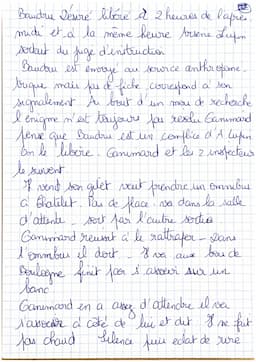 Baudru Désiré libéré à 2 heures de l'après
midi et à la même heure Arsène Lupin
sortait du juge d'instruction
Baudru est envoyé au service anthropomé-
trique mais pas de fiche correspond à son
signalement Au bout d'un mois de recherche
l'énigme n'est toujours pas résolu Ganimard
pense que Baudru est un complice d'A Lupin
on le libère. Ganimard et les 2 inspecteurs
le suivent
Il vend son gilet veut prendre un omnibus
à Chatelet. Pas de place - va dans la salle
d'attente - sort par l'autre sortie
Ganimard réussit à le rattraper - Dans
l'omnibus il dort - Il va aux bois de
Boulogne finit par s'asseoir sur un
banc
Ganimard en a assez d'attendre il va
s'asseoir à côté de lui et dit Il ne fait
pas chaud Silence puis eclat de rire